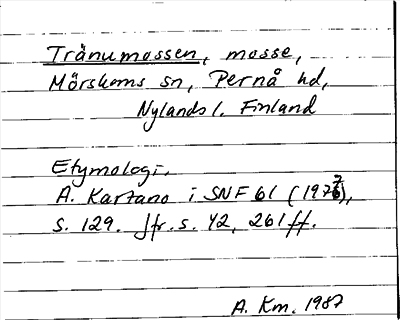 Tranumossen, mosse,
Mörskoms sn, Pernå hd,
Nylands l. Finland
Etymologi.
A. Kartano i SNF 61 (1977),
s. 129. Jfr. s. 42, 261 ff.
A. Km. 1987